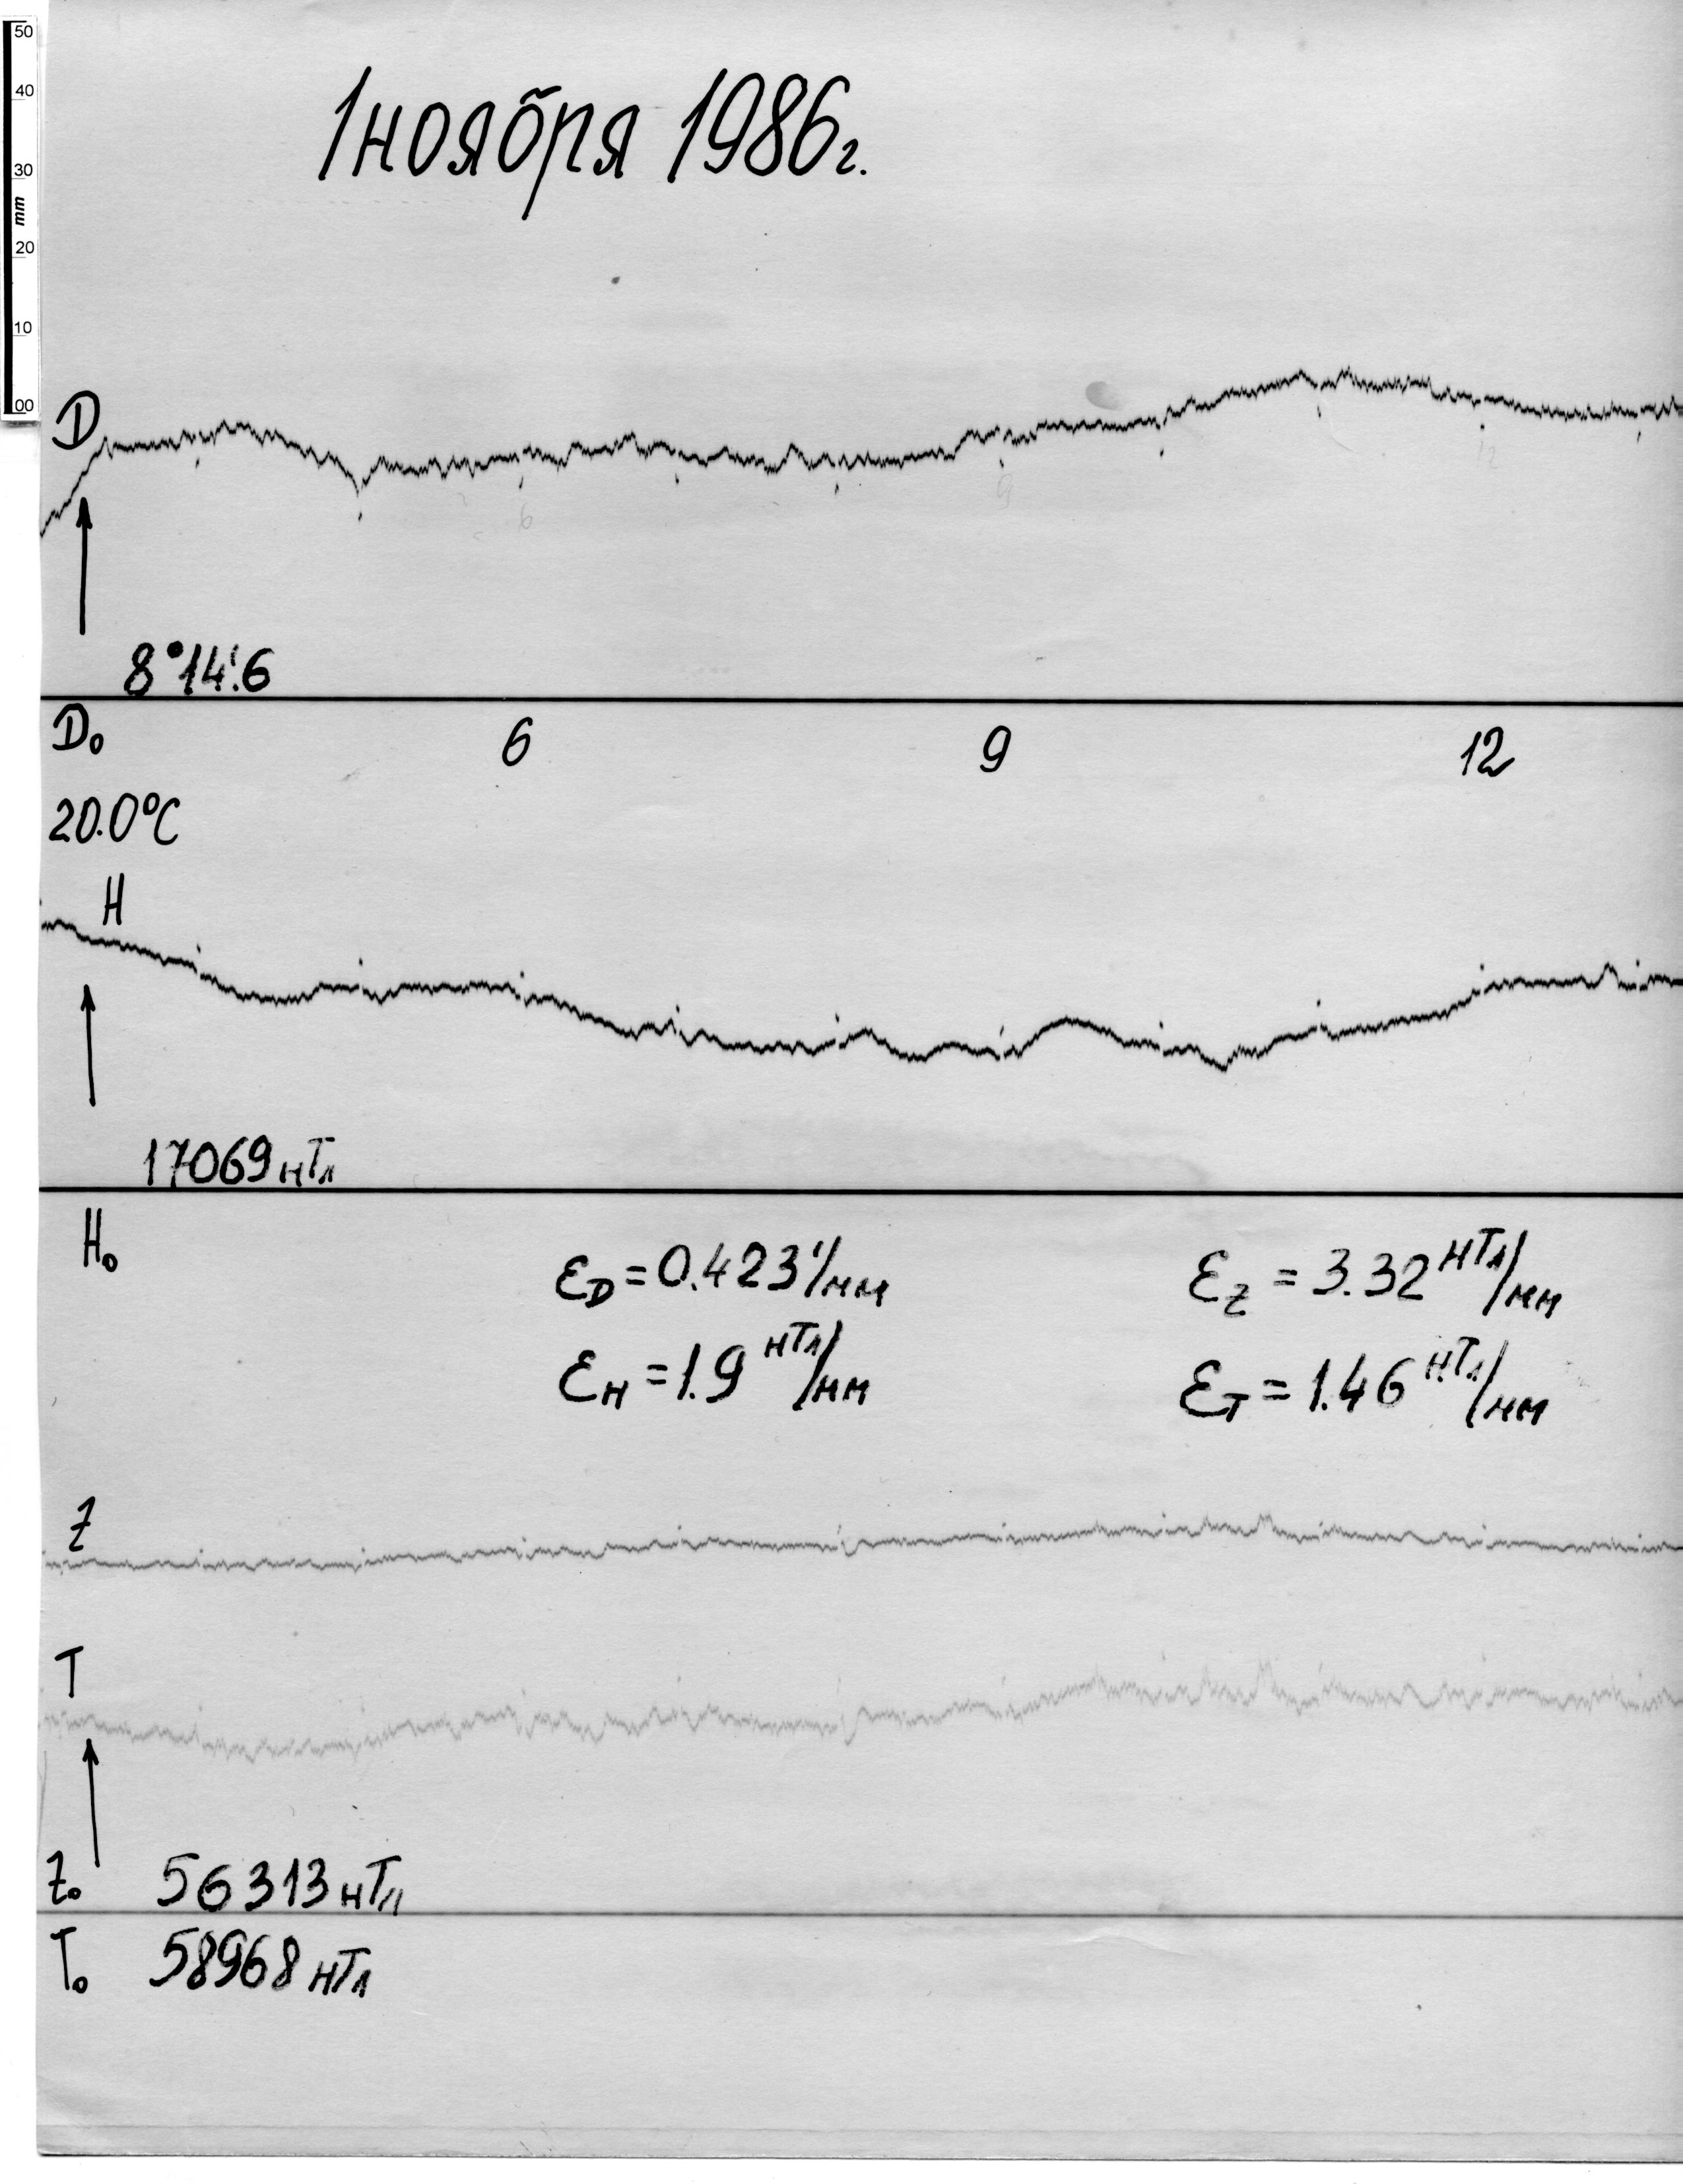 50
40
30
mm
20
10
00
1 ноября 1986г.
D
12
9
6
8°14!6
D₀
6 9 12
20.0°C
H
17069 нТл
H₀
ε_D = 0.423'/мм ε_Z = 3.32 нТл/мм
ε_H = 1.9 нТл/мм ε_T = 1.46 нТл/мм
Z
T
Z₀ 56313 нТл
T₀ 58968 нТл